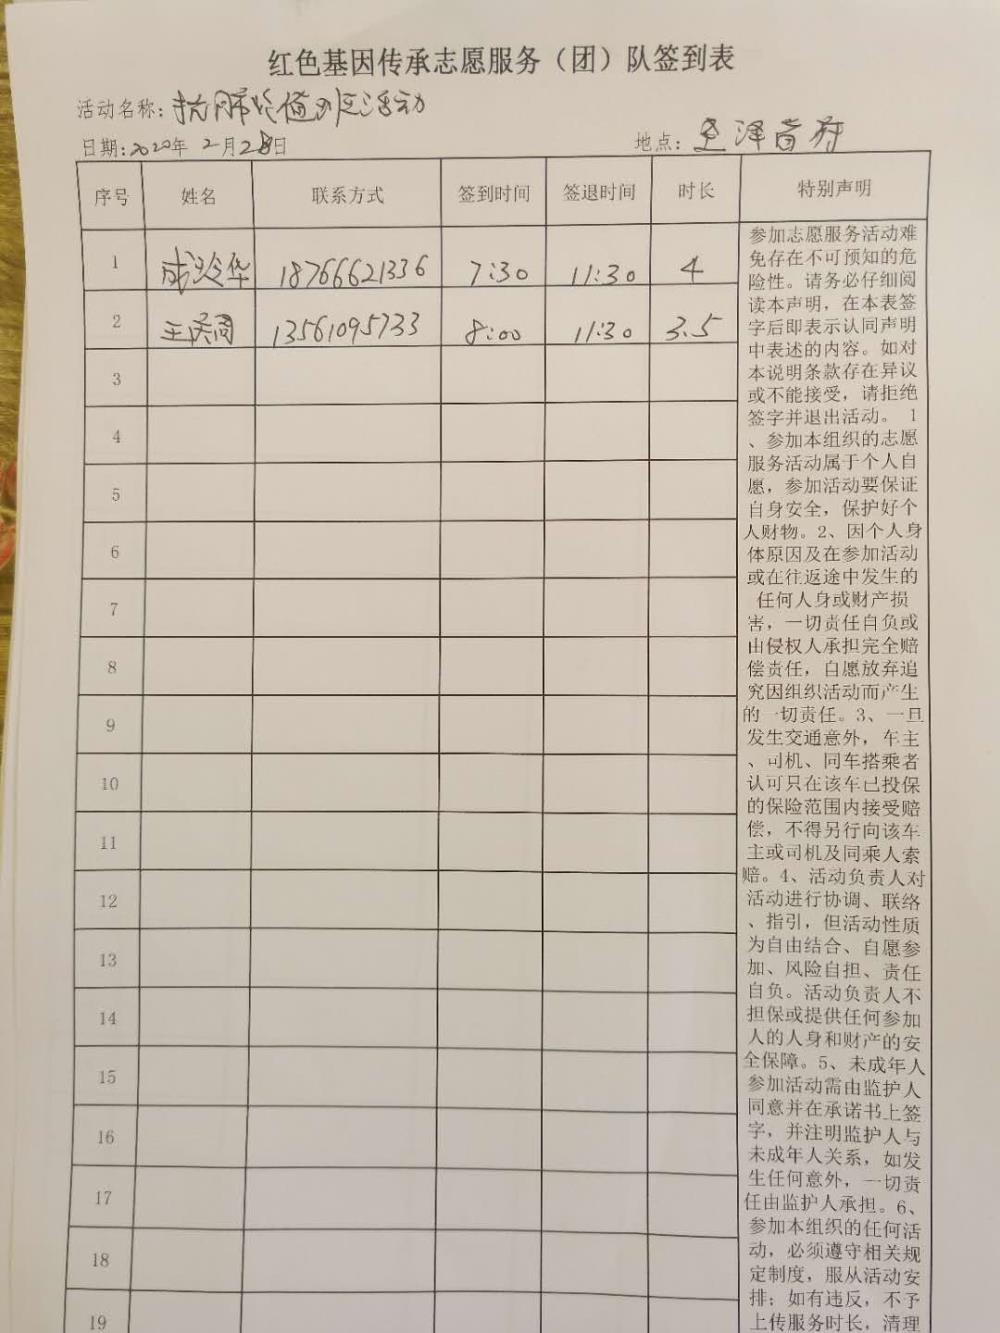 红色基因传承志愿服务（团）队签到表
活动名称：抗肺炎值班活动
日期：2020年 2月28日 地点：圣泽首府
序号 姓名 联系方式 签到时间 签退时间 时长 特别声明
1 成玲华 18766621336 7:30 11:30 4
2 王 13561095733 8:00 11:30 3.5
3
4
5
6
7
8
9
10
11
12
13
14
15
16
17
18
19
参加志愿服务活动难
免存在不可预知的危
险性。请务必仔细阅
读本声明，在本表签
字后即表示认同声明
中表述的内容。如对
本说明条款存在异议
或不能接受，请拒绝
签字并退出活动。 1
、参加本组织的志愿
服务活动属于个人自
愿，参加活动要保证
自身安全，保护好个
人财物。2、因个人身
体原因及在参加活动
或在往返途中发生的
任何人身或财产损
害，一切责任自负或
由侵权人承担完全赔
偿责任，自愿放弃追
究因组织活动而产生
的一切责任。3、一旦
发生交通意外，车主
、司机、同车搭乘者
认可只在该车已投保
的保险范围内接受赔
偿，不得另行向该车
主或司机及同乘人索
赔。4、活动负责人对
活动进行协调、联络
、指引，但活动性质
为自由结合、自愿参
加、风险自担、责任
自负。活动负责人不
担保或提供任何参加
人的人身和财产的安
全保障。5、未成年人
参加活动需由监护人
同意并在承诺书上签
字，并注明监护人与
未成年人关系，如发
生任何意外，一切责
任由监护人承担。6、
参加本组织的任何活
动，必须遵守相关规
定制度，服从活动安
排；如有违反，不予
上传服务时长，清理